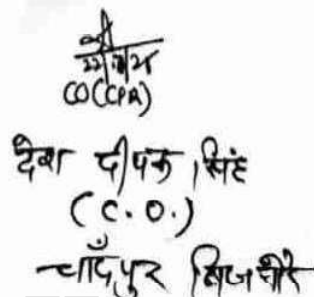 CO (CPR)
देश दीपक सिंह
(C.O.)
चाँदपुर बिजनौर